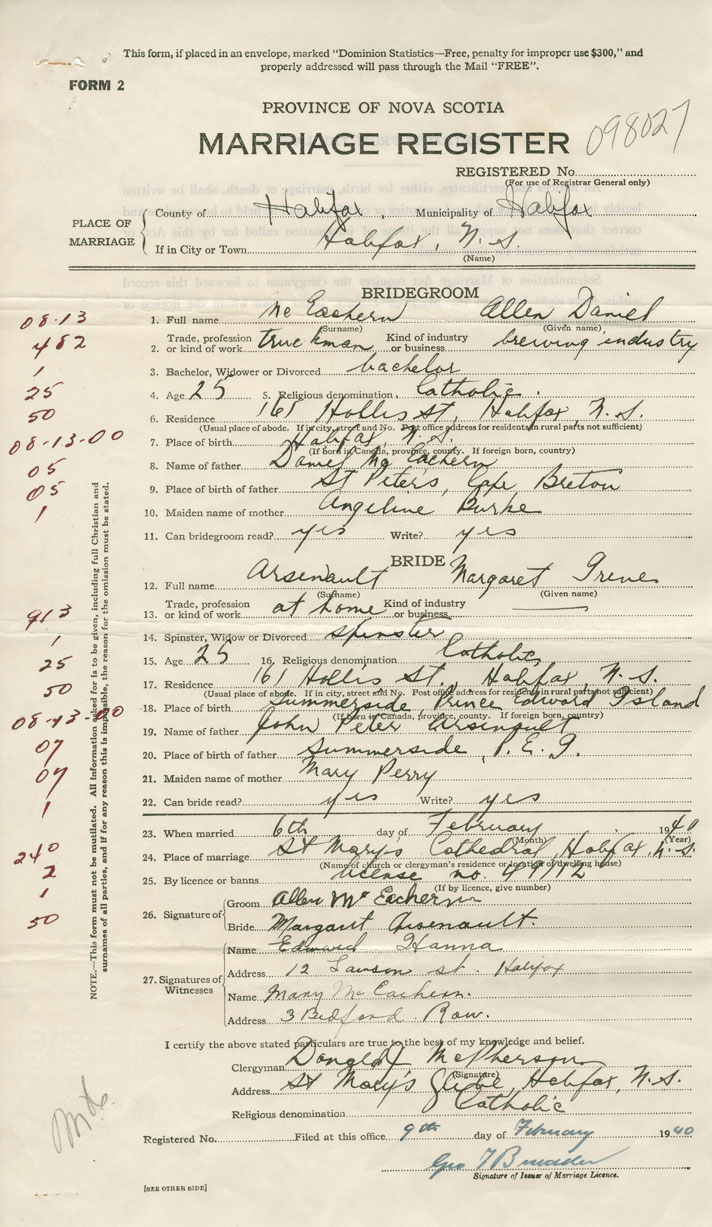 This form, if placed in an envelope, marked "Dominion Statistics—Free, penalty for improper use $300," and
properly addressed will pass through the Mail "FREE".
FORM 2
PROVINCE OF NOVA SCOTIA
MARRIAGE REGISTER 098027
REGISTERED No.
(For use of Registrar General only)
PLACE OF MARRIAGE
County of Halifax, Municipality of Halifax
If in City or Town Halifax, N. S.
(Name)
BRIDEGROOM
08-13 1. Full name Mc Eachern Allen Daniel
(Surname) (Given name)
482 2. Trade, profession or kind of work truckman Kind of industry or business brewing industry
1 3. Bachelor, Widower or Divorced bachelor
25 4. Age 25 5. Religious denomination Catholic.
50 6. Residence 161 Hollis St, Halifax, N. S.
(Usual place of abode. If in city, street and No. Post office address for residents in rural parts not sufficient)
08-13-00 7. Place of birth Halifax, N. S.
(If born in Canada, province, county. If foreign born, country)
05 8. Name of father Daniel Mc Eachern
05 9. Place of birth of father St Peters, Cape Breton
1 10. Maiden name of mother Angeline Burke
11. Can bridegroom read? yes Write? yes
BRIDE
12. Full name Arsenault Margaret Irene
(Surname) (Given name)
913 13. Trade, profession or kind of work at home Kind of industry or business
1 14. Spinster, Widow or Divorced spinster
25 15. Age 25 16. Religious denomination Catholic
50 17. Residence 161 Hollis St. Halifax, N. S.
(Usual place of abode. If in city, street and No. Post office address for residents in rural parts not sufficient)
08-13-00 18. Place of birth Summerside, Prince Edward Island
(If born in Canada, province, county. If foreign born, country)
07 19. Name of father John Peter Arsenault
07 20. Place of birth of father Summerside, P. E. I.
21. Maiden name of mother Mary Perry
1 22. Can bride read? yes Write? yes
23. When married 6th day of February 1940
(Month) (Year)
240 24. Place of marriage St Mary's Cathedral, Halifax, N. S.
(Name of church or clergyman's residence or location of dwelling house)
2 25. By licence or banns license no. 49772
(If by licence, give number)
1 26. Signature of Groom Allen McEachern
50 Bride Margaret Arsenault.
27. Signatures of Witnesses
Name Edmund Hanna
Address 12 Lawson st. Halifax
Name Mary McEachern.
Address 3 Bedford Row.
NOTE.—This form must not be mutilated. All information asked for is to be given, including full Christian and
surnames of all parties, and if for any reason this is impossible, the reason for the omission must be stated.
I certify the above stated particulars are true to the best of my knowledge and belief.
Clergyman Donald J McPherson
(Signature)
Address St Mary's Glebe, Halifax, N. S.
Religious denomination Catholic
Registered No. Filed at this office 9th day of February 1940
Geo
Signature of Issuer of Marriage Licence.
[SEE OTHER SIDE]